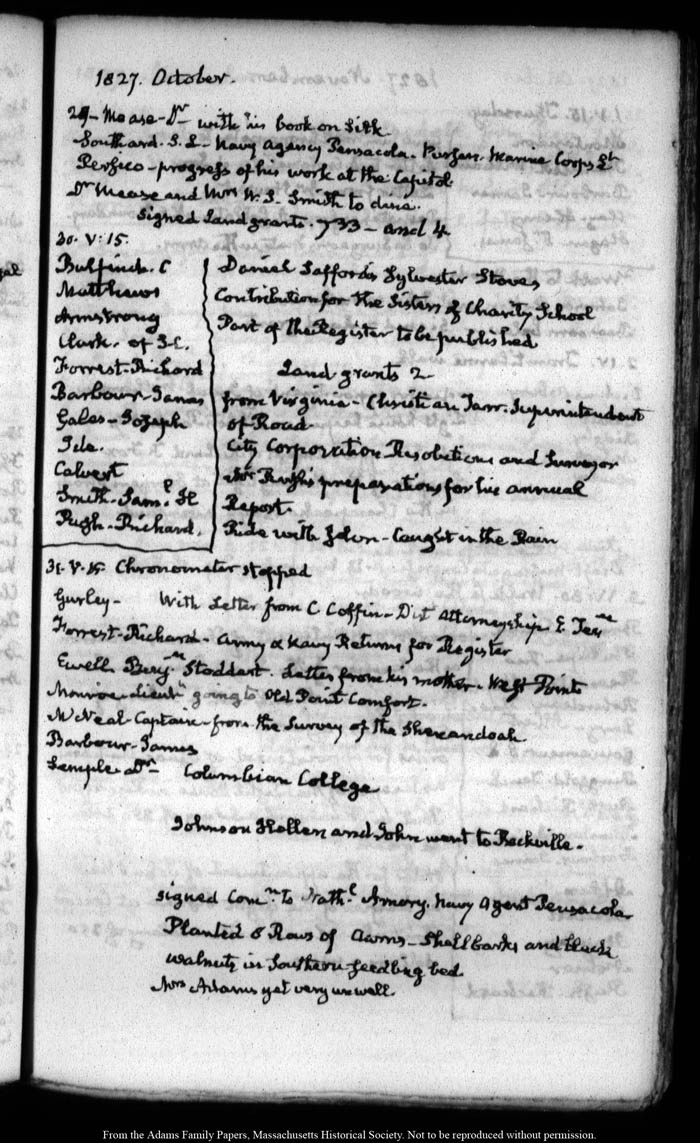 1827. October.
29 - Mease - Dr with his book on Silk
Southard. S. L - Navy Agency Pensacola. Purser. Marine Corps &c
Persico - progress of his work at the Capitol
Dr Mease and Mrs W. S. Smith to dine.
Signed Land grants. 733 - and 4
30. V: 15.
Bulfinch. C
Matthews
Armstrong
Clark. of S. C.
Forrest - Richard
Barbour - James
Gales - Joseph
Ide.
Calvert
Smith - Saml. H
Rush - Richard.
Daniel Saffords Sylvester Stoves
Contribution for the Sisters of Charity School
Part of the Register to be published
Land grants 2
from Virginia - Christian Tarr. Superintendent
of Road
City Corporation Resolutions and Surveyor
Mr Rush's preparations for his annual
Report.
Ride with John - Caught in the Rain
31. V. 15. Chronometer stopped
Gurley - With Letter from C Coffin - Dist Attorneyship E. Tenne
Forrest - Richard - Army & Navy Returns for Register
Ewell Benjn Stoddert. Letter from his mother - West Point
Monroe Lieutt going to Old Point Comfort.
McNeal - Captain - from the Survey of the Shenandoah
Barbour - James
Semple Dr Columbian College
Johnson Hellen and John went to Rockville.
Signed Comn to Nathl Amory. Navy Agent Pensacola
Planted 8 Rows of Acorns - Shellbarks and black
walnuts in Southern seedling bed
Mrs Adams yet very unwell.
From the Adams Family Papers, Massachusetts Historical Society. Not to be reproduced without permission.